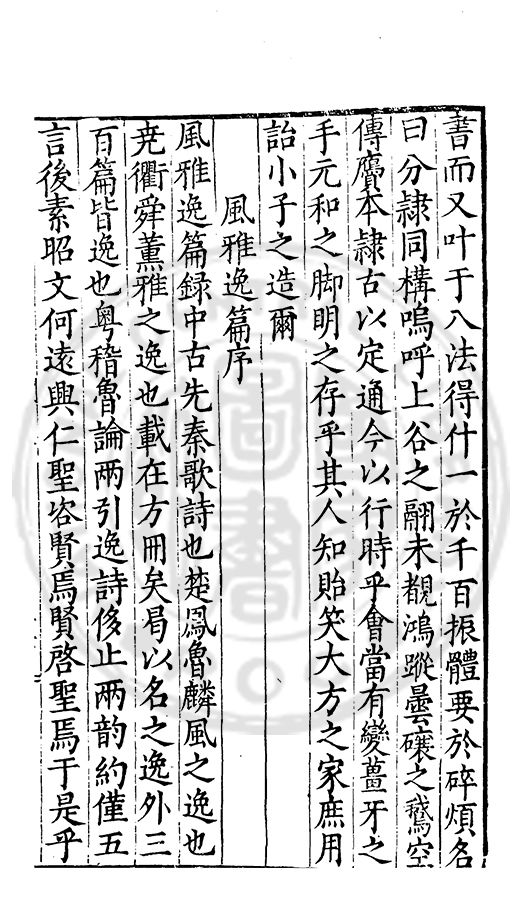 書而又叶于八法得什一於千百振體要於碎煩名
曰分隷同構嗚呼上谷之翮未覩鴻蹤曇礲之鵞空
傳贗本隷古以定通今以行時乎會當有變薑牙之
手元和之脚眀之存乎其人知貽笑大方之家庶用
詒小子之造爾
風雅逸篇序
風雅逸篇録中古先秦歌詩也楚鳳魯麟風之逸也
尭衢舜薰雅之逸也載在方冊矣曷以名之逸外三
百篇皆逸也粤稽魯論两引逸詩侈止两韵約僅五
言後素昭文何遠興仁聖咨賢焉賢啓聖焉于是乎